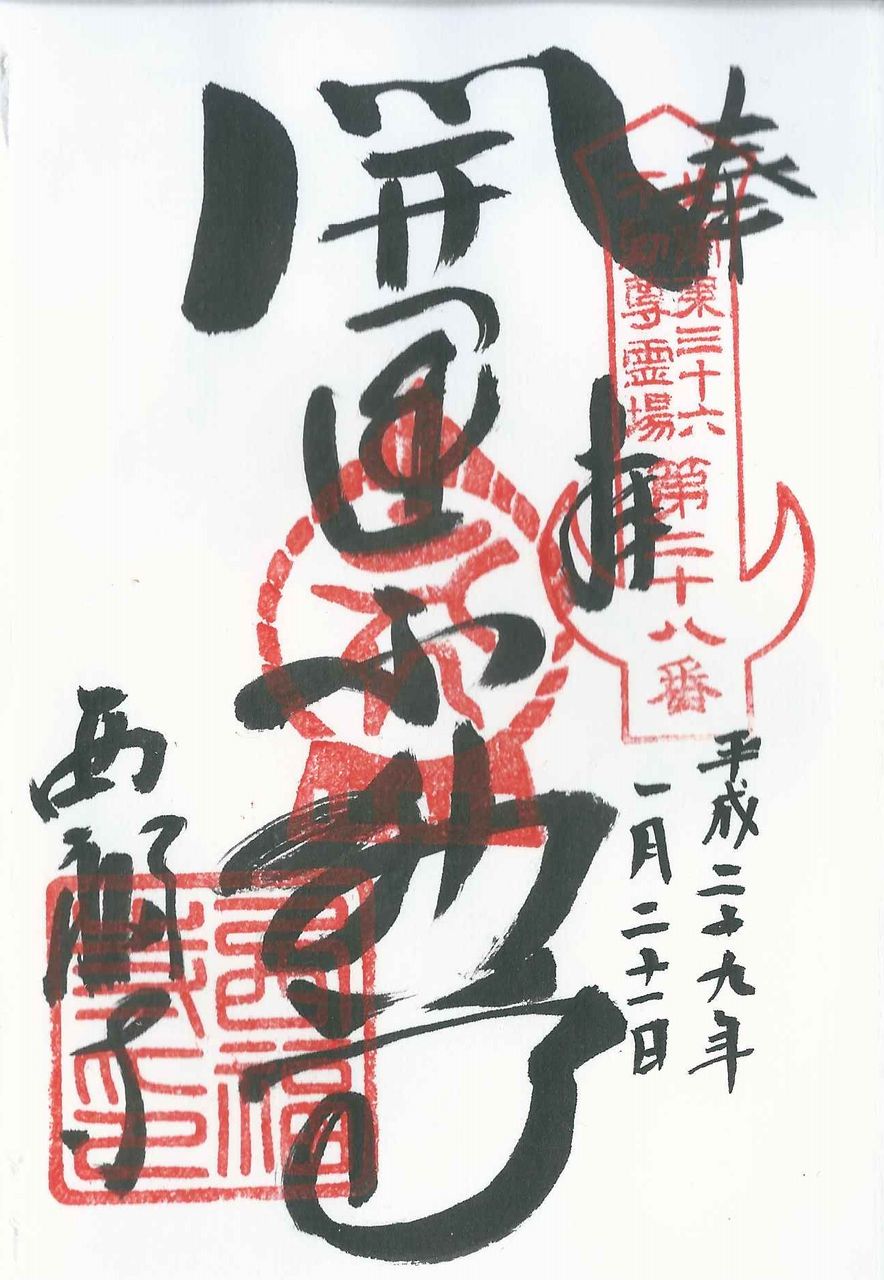 奉拝
北関東三十六
不動尊霊場
第二十八番
平成二十九年
一月二十一日
開運不動尊
西福寺